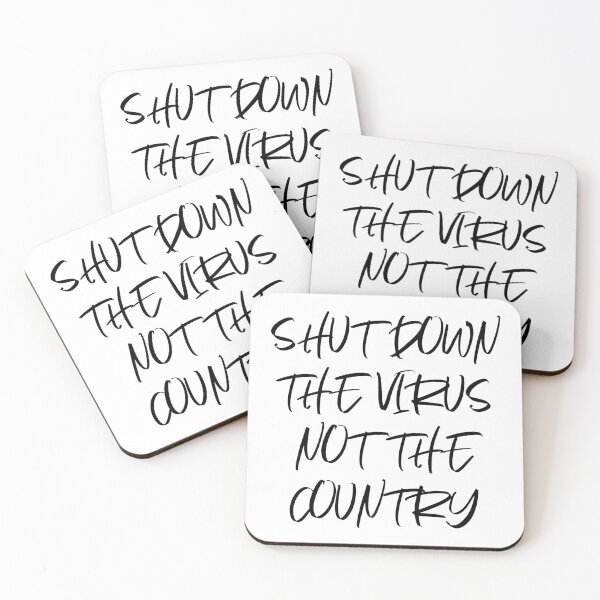 SHUT DOWN
THE VIRUS
THE
SHUT DOWN
THE VIRUS
NOT THE
SHUT DOWN
THE VIRUS
NOT THE
SHUT DOWN
THE VIRUS
NOT THE
COUNTRY